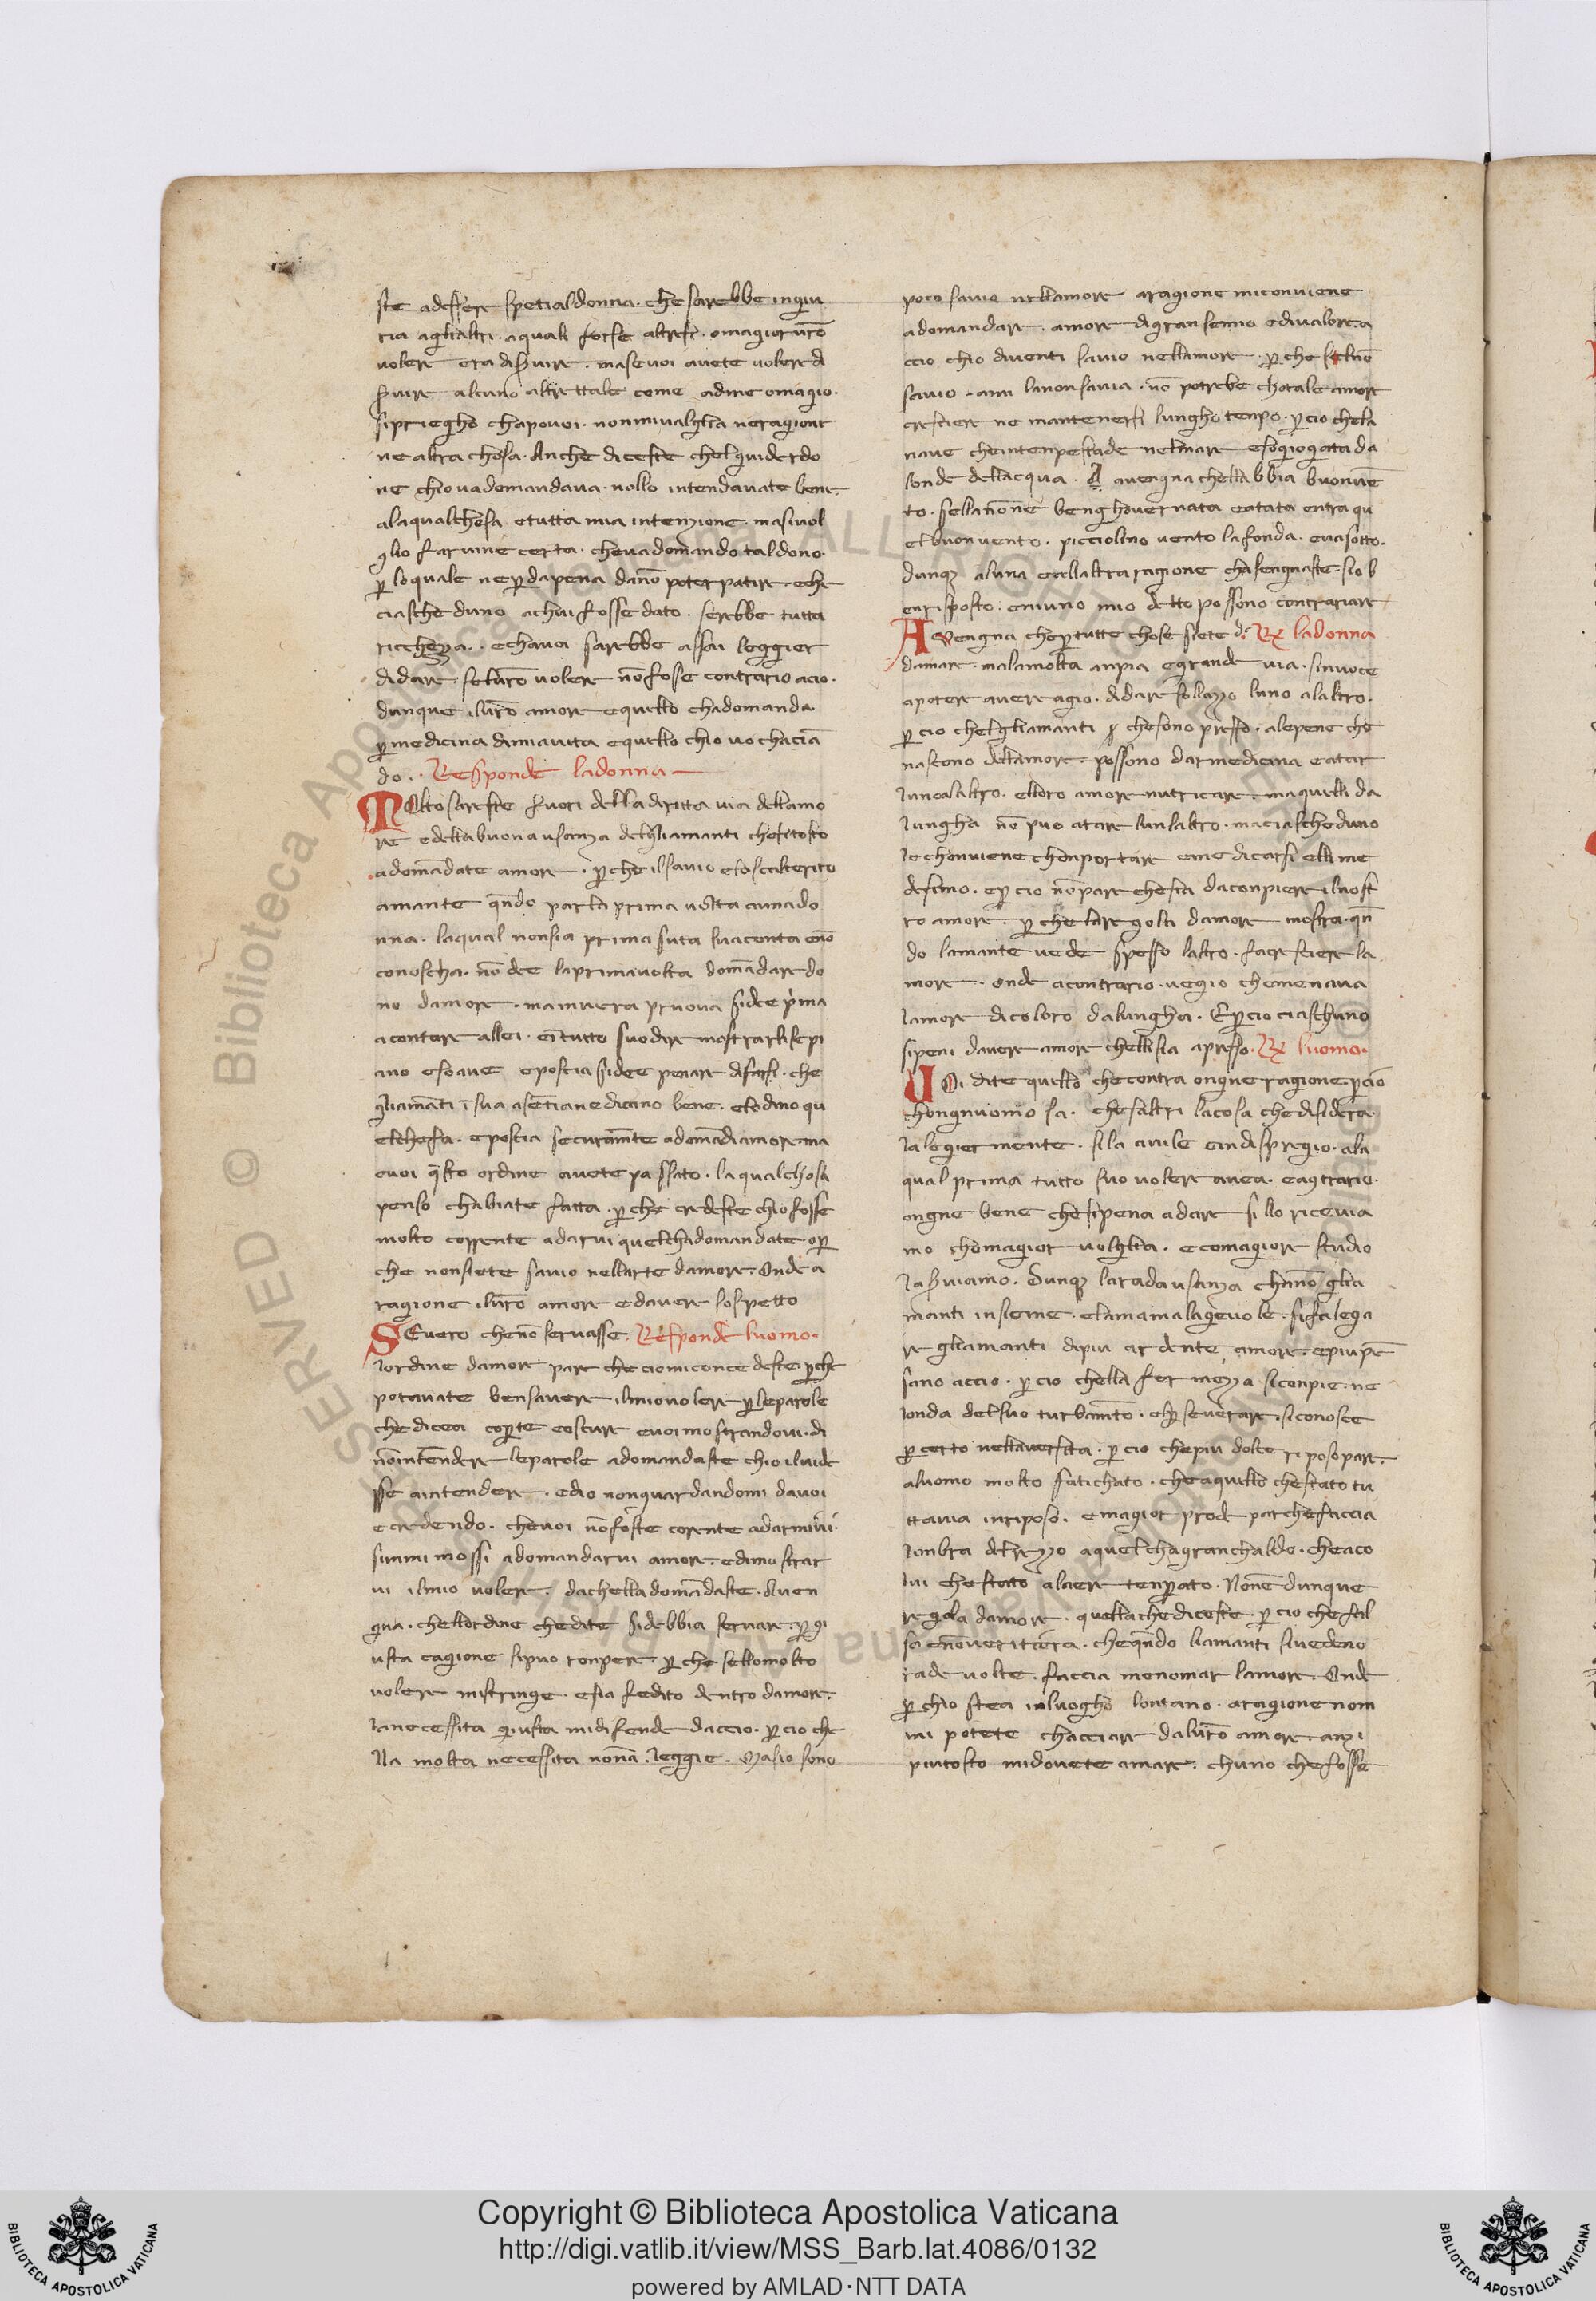 ste adessere spetial donna. che sarebbe ingiu
ria aglialtri. aquali forse altresi. omagior vr̄o
volere era diservire. ma se voi avete volere di
servire alcuno altrettale come adme omagio.
sipriegho chapo voi. nonmi valglia ne ragione
ne altra chosa. Anche diceste chel guiderdo
ne chiovadomandava. nollo intendavate bene.
alaqualchosa etutta mia intenzione. masivol
glio farvine certa. chevadomando tal dono.
ꝑ loquale neꝑdapena danō poter patire. eche
ciascheduno achui fosse dato. serebbe tutta
richeza. echavoi sarebbe assai leggier
didare. selur̄o volere nō fosse contrario acio.
dunque iluro amore equello chadomanda
ꝑ medicina dimiavita equello chio vo chacian
do. Responde ladonna
Molto sareste fuori della diritta via dellamo
re edellabuona usanza deglliamanti chesitosto
adomādate amore. ꝑche ilsavio eloscalterito
amante qn̄do parla prima volta aunado
nna. laqual nonsia prima suta suaconta enō
conoscha. nō dee laprimavolta domādare do
no damore. mamivera pruova sidee pima
acontare allei. eītutto suodire mostrarlisepi
ano esoave eposcia sidee penare difarsi. che
gliamāti ī sua asētianedicano bene. elodino qu
elchefa. eposcia securamte adomādiamore. ma
evoi qsto ordine avete passato. laqualchosa
penso chabiate fatta. ꝑche credeste chio fosse
molto corrente adarvi quelchadomandate. oꝑ
che nonsiete savio nellarte damore. Onde a
ragione iluro amore edavere sospetto
SEuero chenō servasse. Responde luomo.
lordine damore pare checiomiconcedeste. ꝑche
potavate bensavere ilmiovolere ꝑleparole
chedicea coꝑte eoscure evoi mostrandovi. di
nōintendere leparole adomandaste chio ilvide
sse aintendere. edio nonguardandomi davoi
ecredendo. chevoi nōfoste corente adarmivi.
simmi mossi adomandarvi amore. edimostrar
vi ilmio volere. dachella domādaste. Aven
gna. chellordine chedite sidebbia servare. ꝑ gi
usta cagione sipuo ronpere. ꝑche sellomolto
volere mistringe. esia fedito dentro damore.
lanecessita giusta midifende daccio. ꝑ cio che
lla molta necessita nonā leggie. Masio sono
poco savio nellamore aragione miconviene
adomandare. amore digransenno edivalore. a
ccio chio diventi savio nellamore. ꝑ che
savio. ama lanonsavia. nō potrebe chotale amore
crescier ne mantenersi lungho tenpo. ꝑ cio chela
nave cheintenpestade nelmare esogiogata da
londe dellacqua. avengna chellabbia buonvē
to. sellanōne benghovernata eatata entra qu
elbuonvento. picciolino vento lafonda. evasotto.
dunqꝫ aluna eallaltraragione chasengnaste. sio b
enrisposto. eniuno mio detto possono contrariare
AVengna cheꝑtutte chose siete dí Rx ladonna
damare. malamolta anpia egrande via. sinvoce
apotere averragio. didare sollazzo luno alaltro.
ꝑ cio chelgliamanti chesono presso. alepene che
nascono dellamore. possono dar medicina eatar
lunoalaltro. elloro amore nutricare. maquelli da
lungha nō puo atare lunlaltro. maciascheduno
leconviene chonportare emedicarsi ellime
desimo. eꝑ cio nōpare chesia daconpiere ilnost
ro amore. ꝑ che laregola damore mostra. qn̄
do lamante vede spesso laltro. facresciere la
more. onde acontrario. vegio chemenava
lamore dicoloro dalungha. Eꝑcio ciaschuno
sipeni davere amore chelli sia apresso. Rx luomo.
VOi dite quello checontra ongne ragione. ꝑ ciō
chongnuomo sa. chesaltri lacosa chedisidera.
lalegiermente. sila avile eindispregio. ala
qual prima tutto suovolere avea. eagtrario.
ongne bene chesipena adare sillo ricevia
mo chōmagior volglia. ecomagiore studio
laserviamo. Dunqꝫ laradausanza channo glia
manti insieme. elamamalagevole. sifalega
re gliamanti dipiu ardente amore. epiu pē
sano accio. ꝑ cio chella fermezza siconpie. ne
londa delsuo turbamto. eꝑseverare. siconosce
ꝑ certo nellaversita. ꝑ cio chepiu dolce riposopare.
aluomo molto fatichato. cheaquello chestato tu
ttavia inriposo. emagior prode parchefaccia
lonbra delrezzo aquelchagranchaldo. cheaco
lui chestato alaere tenperato. Nonē dunque
regola damore. quella chediceste. ꝑ cio che fal
sa enōveritiera. cheqn̄do liamanti sivedeno
rade volte. faccia menomar lamore. Onde
ꝑ chio stea inluogho lontano. aragione nom
mi potete chacciare daluro amore. anzi
piutosto midovete amare. chuno chefosse
Copyright © Biblioteca Apostolica Vaticana
http://digi.vatlib.it/view/MSS_Barb.lat.4086/0132
powered by AMLAD·NTT DATA
BIBLIOTECA APOSTOLICA VATICANA
BIBLIOTECA APOSTOLICA VATICANA